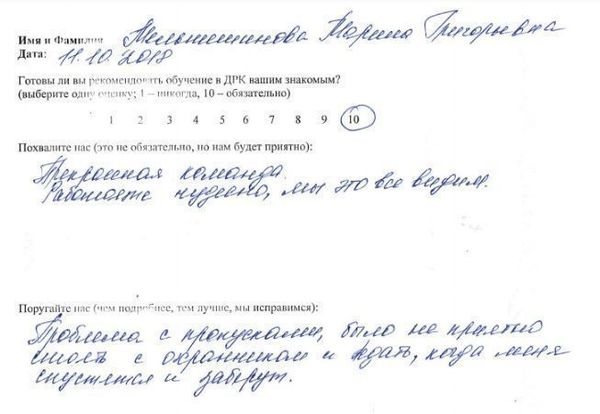 Имя и Фамилия Мельишинова Марина Григорьевна
Дата: 11.10.2018
Готовы ли вы рекомендовать обучение в ДРК вашим знакомым?
(выберите одну оценку; 1 – никогда, 10 – обязательно)
1 2 3 4 5 6 7 8 9 10
Похвалите нас (это не обязательно, но нам будет приятно):
Прекрасная команда.
Работаете чудесно, мы это все видим.
Поругайте нас (чем подробнее, тем лучше, мы исправимся):
Проблема с пропусками, было не приятно
стоять с охранником и ждать, когда меня
спустятся и заберут.